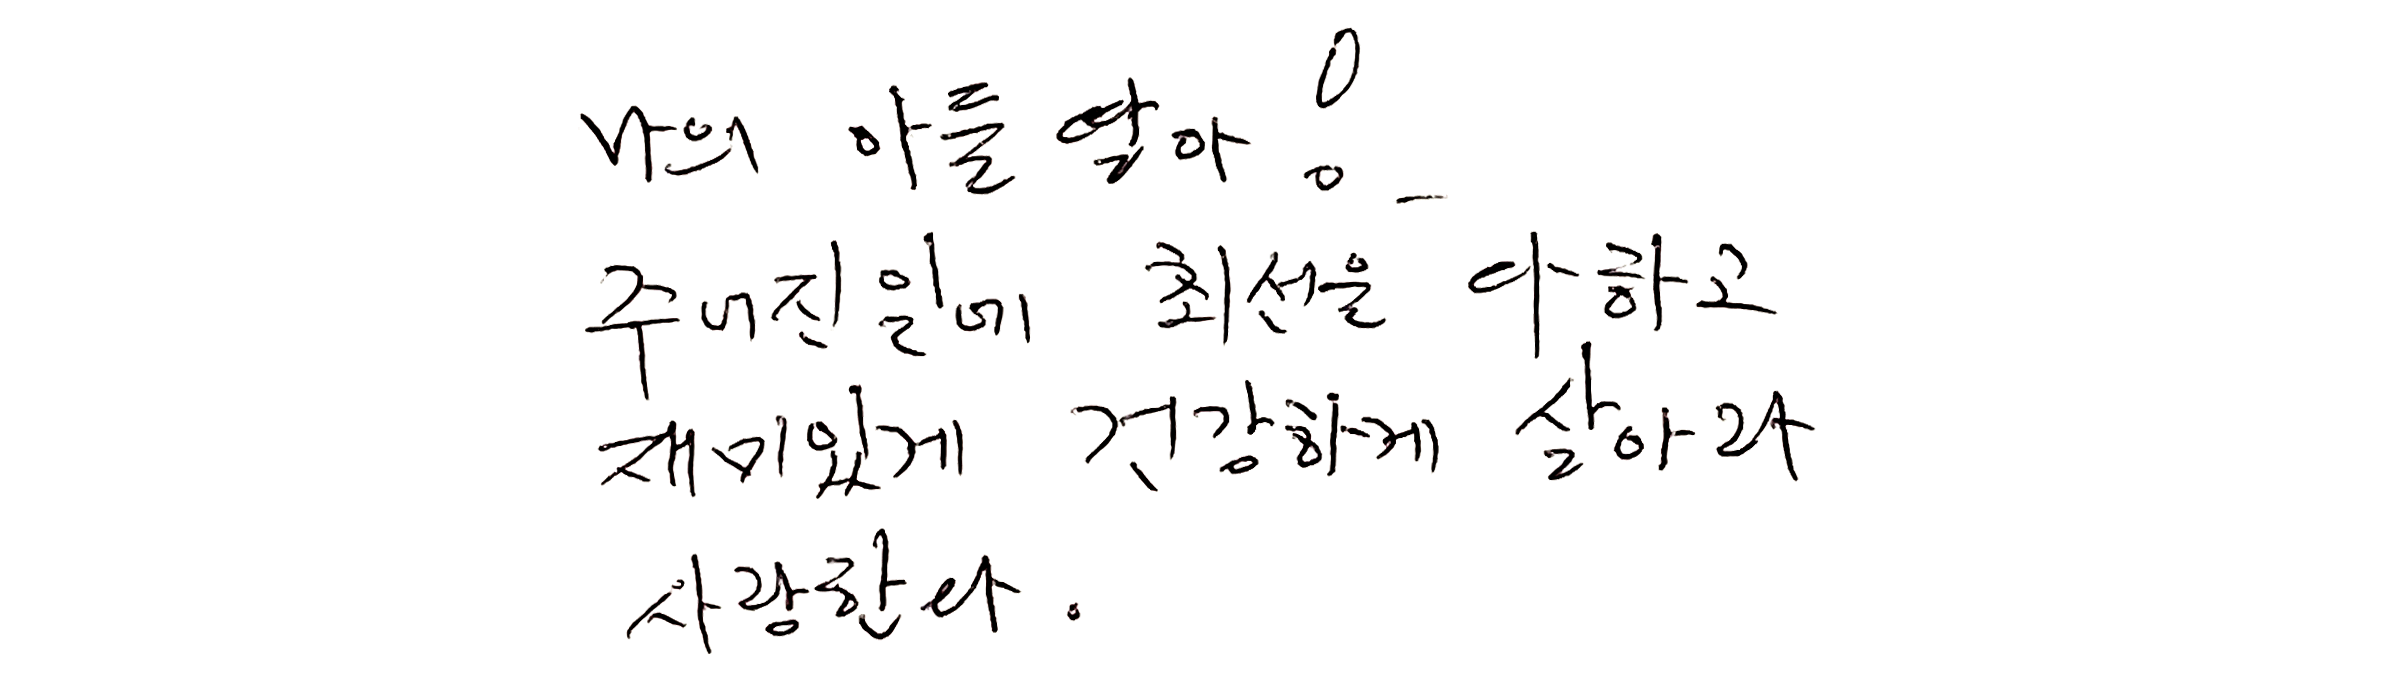 나의 아들 딸아!
주어진 일에 최선을 다하고
재미있게 건강하게 살아라
사랑한다.